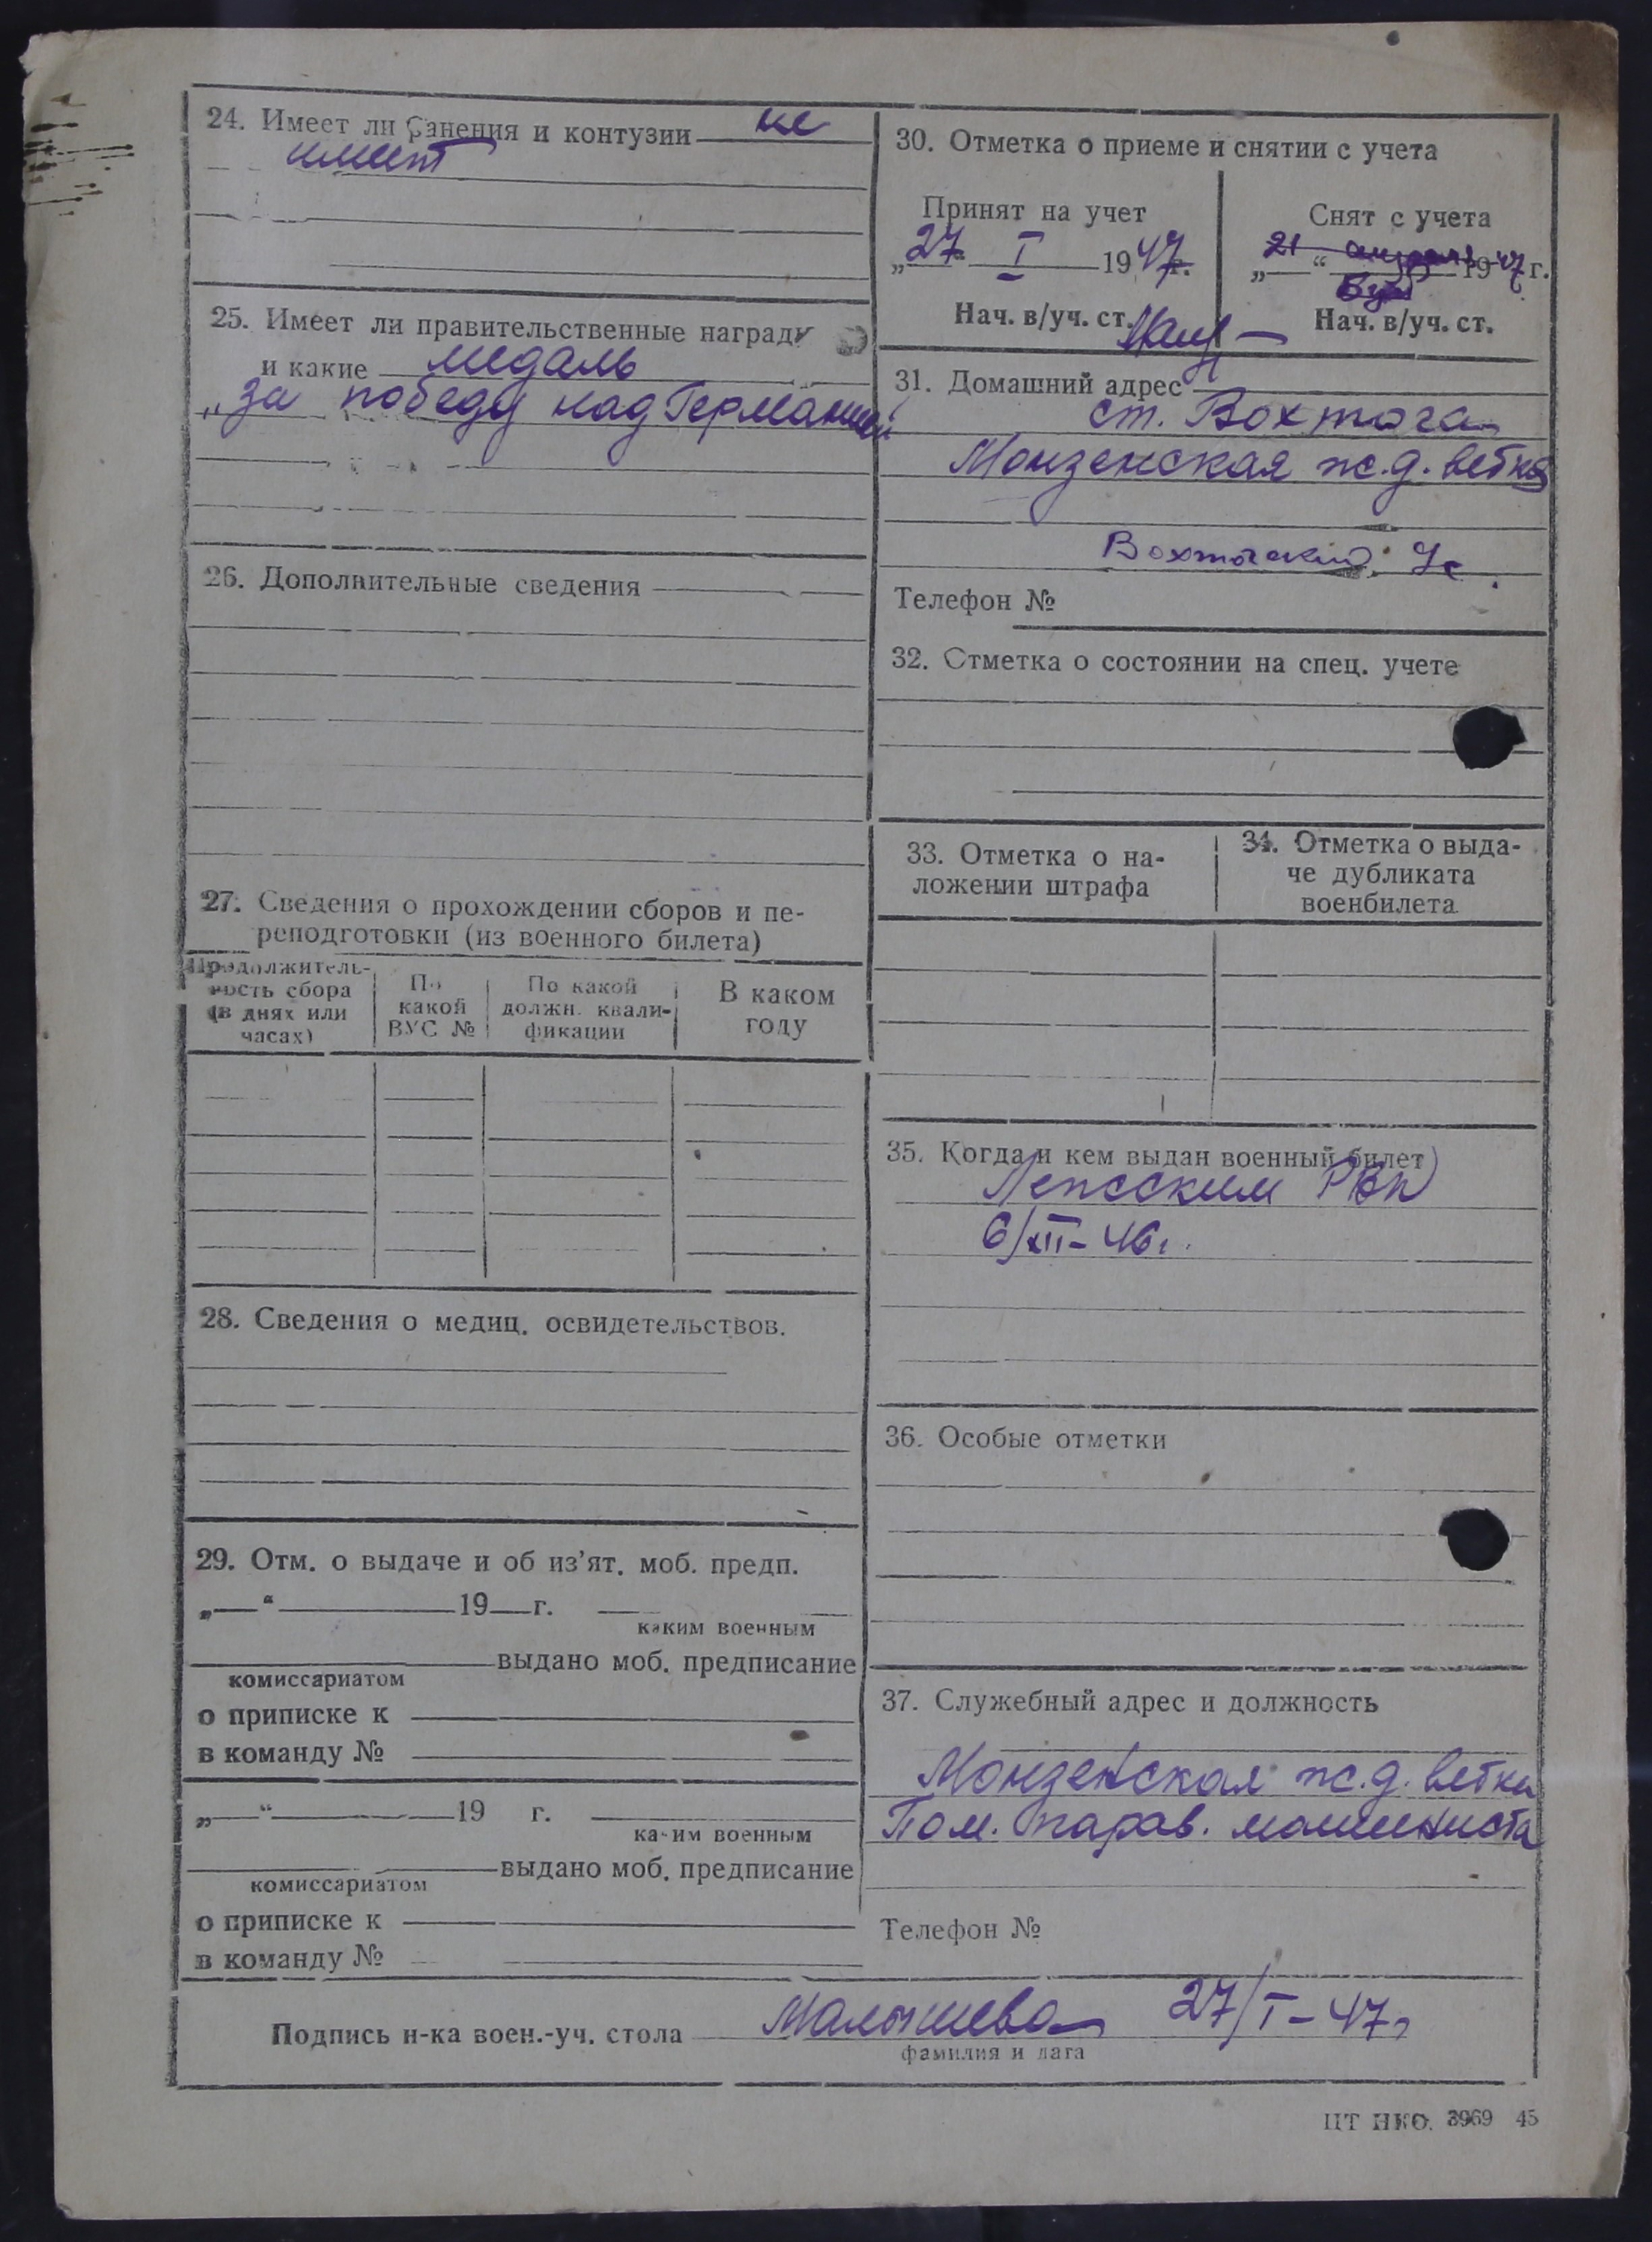 24. Имеет ли ранения и контузии не
имеет
25. Имеет ли правительственные награды
и какие медаль
„за победу над Германией“
26. Дополнительные сведения
27. Сведения о прохождении сборов и пе-
реподготовки (из военного билета)
Продолжитель-
ность сбора
(в днях или
часах)
По
какой
ВУС №
По какой
должн. квали-
фикации
В каком
году
28. Сведения о медиц. освидетельствов.
29. Отм. о выдаче и об из’ят. моб. предп.
„ “ 19 г.
каким военным
выдано моб. предписание
комиссариатом
о приписке к
в команду №
„ “ 19 г.
каким военным
выдано моб. предписание
комиссариатом
о приписке к
в команду №
30. Отметка о приеме и снятии с учета
Принят на учет
„27“ I 1947г.
Нач. в/уч. ст.
Снят с учета
„21“ апреля 1947г.
Нач. в/уч. ст.
31. Домашний адрес
ст. Вохтога
Монзенская ж.д. ветка
Вохтогский
Телефон №
32. Отметка о состоянии на спец. учете
33. Отметка о на-
ложении штрафа
34. Отметка о выда-
че дубликата
военбилета
35. Когда и кем выдан военный билет
РВК
6/XII-46г.
36. Особые отметки
37. Служебный адрес и должность
Монзенская ж.д. ветка
Пом. парав. машиниста
Телефон №
Подпись н-ка воен.-уч. стола Малышева 27/I-47г
фамилия и дата
ЦТ НКО. 3969 45